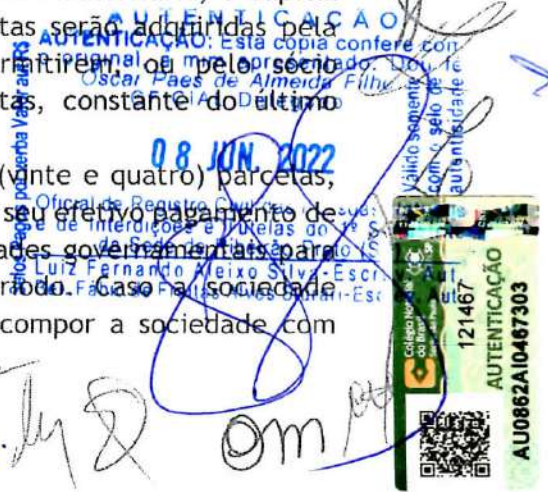 tas serão adquiridas pela
rmitirem, ou pelo sócio
tas, constante do último
(vinte e quatro) parcelas,
seu efetivo pagamento de
ades governamentais para
ríodo. Caso a sociedade
compor a sociedade com
AUTENTICAÇÃO
AUTENTICAÇÃO: Esta cópia confere com
o original a mim apresentado. Dou fé
Oscar Paes de Almeida Filho
OFICIAL Delegado
08 JUN. 2022
Oficial de Registro Civil das
e de Interdições e Tutelas do 1º
da Sede de Ribeirão Preto
Luiz Fernando Aleixo Silva-Escrev. Aut
Válido somente
com o selo de
autenticidade
Colégio Notarial
do Brasil
121467
AUTENTICAÇÃO
AU0862AI0467303